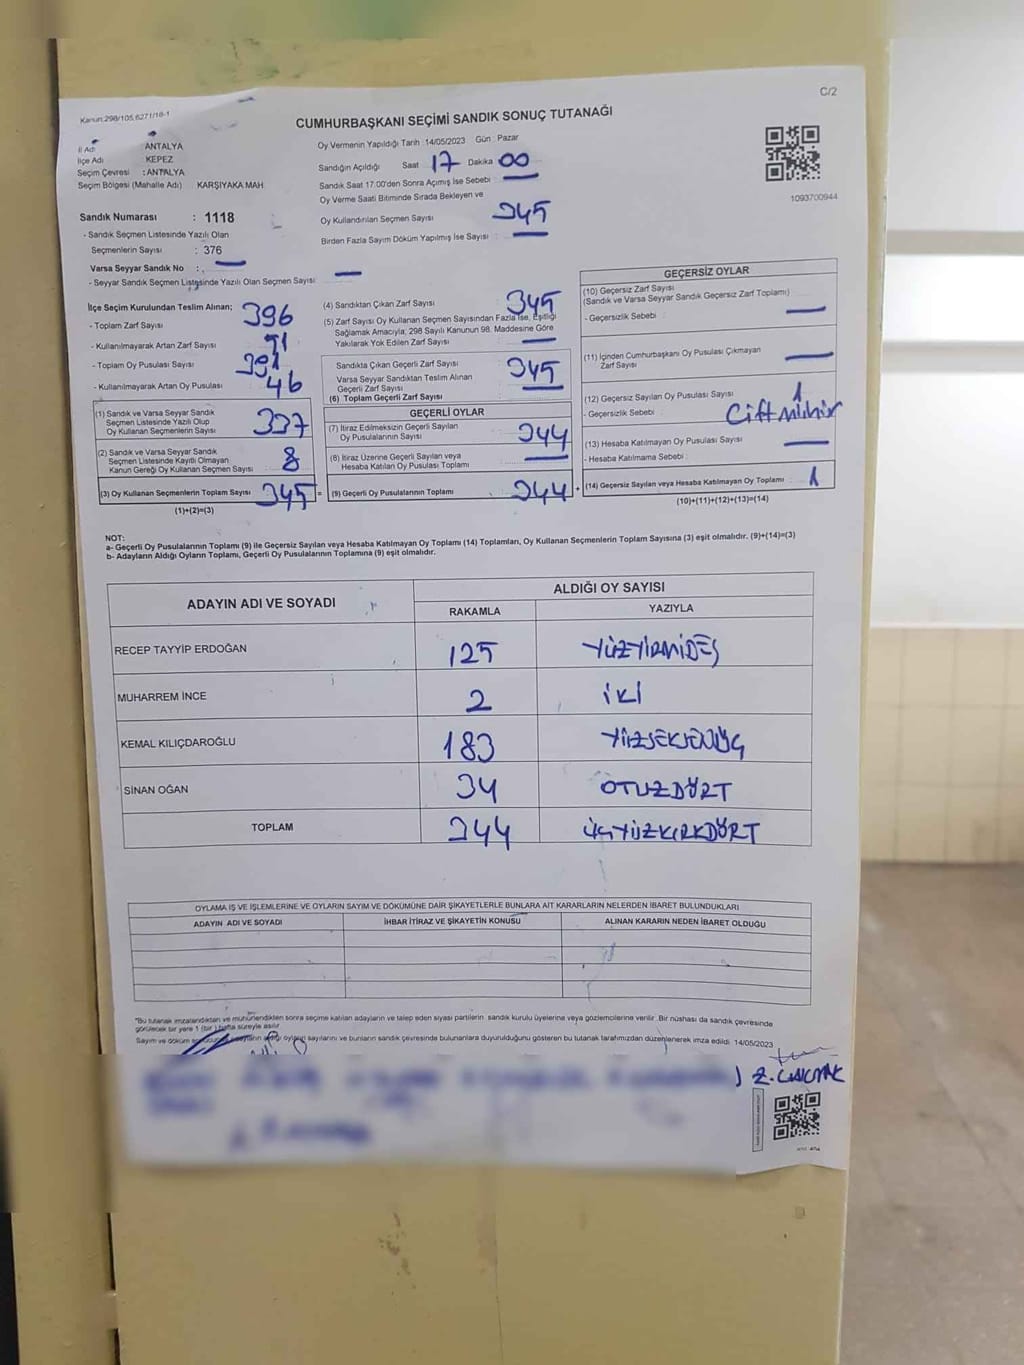 C/2
Kanun:298/105,6271/18-1
CUMHURBAŞKANI SEÇİMİ SANDIK SONUÇ TUTANAĞI
İl Adı : ANTALYA
İlçe Adı : KEPEZ
Seçim Çevresi : ANTALYA
Seçim Bölgesi (Mahalle Adı) KARŞIYAKA MAH.
Oy Vermenin Yapıldığı Tarih :14/05/2023 Gün : Pazar
Sandığın Açıldığı Saat 17 Dakika 00
Sandık Saat 17:00'den Sonra Açımış İse Sebebi : —
Oy Verme Saati Bitiminde Sırada Bekleyen ve
Oy Kullandırılan Seçmen Sayısı : 345
Birden Fazla Sayım Döküm Yapılmış İse Sayısı : —
1093700944
Sandık Numarası : 1118
- Sandık Seçmen Listesinde Yazılı Olan
Seçmenlerin Sayısı : 376
Varsa Seyyar Sandık No : —
- Seyyar Sandık Seçmen Listesinde Yazılı Olan Seçmen Sayısı: —
İlçe Seçim Kurulundan Teslim Alınan;
- Toplam Zarf Sayısı 396
- Kullanılmayarak Artan Zarf Sayısı
- Toplam Oy Pusulası Sayısı 391
- Kullanılmayarak Artan Oy Pusulası 46
(1) Sandık ve Varsa Seyyar Sandık
Seçmen Listesinde Yazılı Olup
Oy Kullanan Seçmenlerin Sayısı 337
(2) Sandık ve Varsa Seyyar Sandık
Seçmen Listesinde Kayıtlı Olmayan
Kanun Gereği Oy Kullanan Seçmen Sayısı 8
(3) Oy Kullanan Seçmenlerin Toplam Sayısı 345 =
(1)+(2)=(3)
(4) Sandıktan Çıkan Zarf Sayısı 345
(5) Zarf Sayısı Oy Kullanan Seçmen Sayısından Fazla İse, Eşitliği
Sağlamak Amacıyla, 298 Sayılı Kanunun 98. Maddesine Göre
Yakılarak Yok Edilen Zarf Sayısı —
Sandıkta Çıkan Geçerli Zarf Sayısı 345
Varsa Seyyar Sandıktan Teslim Alınan
Geçerli Zarf Sayısı —
(6) Toplam Geçerli Zarf Sayısı
GEÇERLİ OYLAR
(7) İtiraz Edilmeksizin Geçerli Sayılan
Oy Pusulalarının Sayısı 344
(8) İtiraz Üzerine Geçerli Sayılan veya
Hesaba Katılan Oy Pusulası Toplamı —
(9) Geçerli Oy Pusulalarının Toplamı : 344 +
GEÇERSİZ OYLAR
(10) Geçersiz Zarf Sayısı
(Sandık ve Varsa Seyyar Sandık Geçersiz Zarf Toplamı)
- Geçersizlik Sebebi : —
(11) İçinden Cumhurbaşkanı Oy Pusulası Çıkmayan
Zarf Sayısı —
(12) Geçersiz Sayılan Oy Pusulası Sayısı 1
- Geçersizlik Sebebi : Çift Mühür
(13) Hesaba Katılmayan Oy Pusulası Sayısı —
- Hesaba Katılmama Sebebi :
(14) Geçersiz Sayılan veya Hesaba Katılmayan Oy Toplamı : 1
(10)+(11)+(12)+(13)=(14)
NOT:
a- Geçerli Oy Pusulalarının Toplamı (9) ile Geçersiz Sayılan veya Hesaba Katılmayan Oy Toplamı (14) Toplamları, Oy Kullanan Seçmenlerin Toplam Sayısına (3) eşit olmalıdır. (9)+(14)=(3)
b- Adayların Aldığı Oyların Toplamı, Geçerli Oy Pusulalarının Toplamına (9) eşit olmalıdır.
ADAYIN ADI VE SOYADI ALDIĞI OY SAYISI
RAKAMLA YAZIYLA
RECEP TAYYİP ERDOĞAN 125 YÜZYİRMİBEŞ
MUHARREM İNCE 2 İKİ
KEMAL KILIÇDAROĞLU 183 YÜZSEKSENÜÇ
SİNAN OĞAN 34 OTUZDÖRT
TOPLAM 344 ÜÇYÜZKIRKDÖRT
OYLAMA İŞ VE İŞLEMLERİNE VE OYLARIN SAYIM VE DÖKÜMÜNE DAİR ŞİKAYETLERLE BUNLARA AİT KARARLARIN NELERDEN İBARET BULUNDUKLARI
ADAYIN ADI VE SOYADI İHBAR İTİRAZ VE ŞİKAYETİN KONUSU ALINAN KARARIN NEDEN İBARET OLDUĞU
*Bu tutanak imzalandıktan ve mühürlendikten sonra seçime katılan adayların ve talep eden siyasi partilerin sandık kurulu üyelerine veya gözlemcilerine verilir. Bir nüshası da sandık çevresinde
görülecek bir yere 1 (bir) hafta süreyle asılır.
Sayım ve döküm aldığı oyların sayılarını ve bunların sandık çevresinde bulunanlara duyurulduğunu gösteren bu tutanak tarafımızdan düzenlenerek imza edildi. 14/05/2023
Z. ÇAKMAK